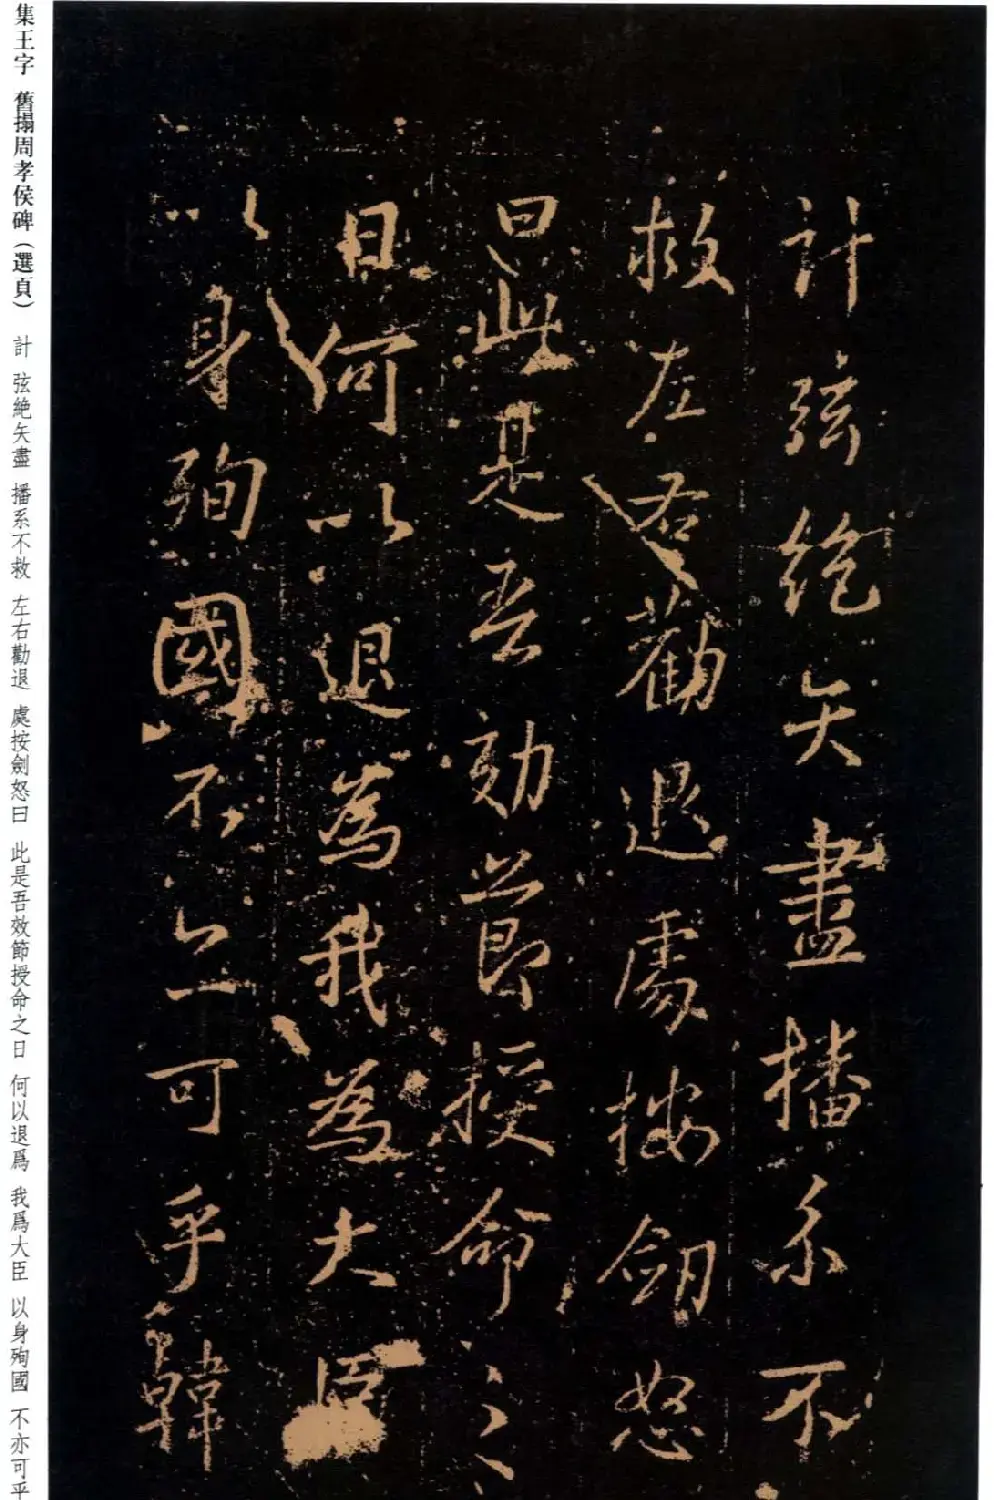 計弦絶矢盡播系不
救左右勸退處按劒怒
曰此是吾効節授命之
日何以退為我為大臣
以身殉國不亦可乎韓
集王字 舊搨周孝侯碑（選頁） 計 弦絶矢盡 播系不救 左右勸退 處按劍怒曰 此是吾效節授命之日 何以退爲 我爲大臣 以身殉國 不亦可乎